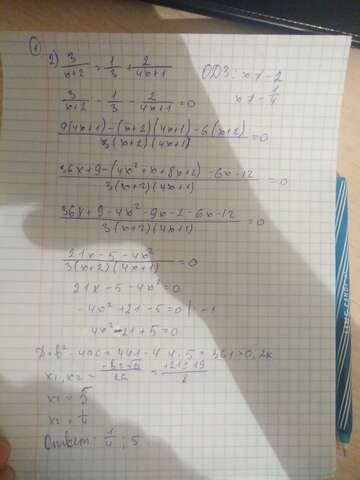 ①
2) 3/(x+2) = 1/3 + 2/(4x+1) ОДЗ: x ≠ -2
x ≠ -1/4
3/(x+2) - 1/3 - 2/(4x+1) = 0
(9(4x+1) - (x+2)(4x+1) - 6(x+2))/(3(x+2)(4x+1)) = 0
(36x+9-(4x²+x+8x+2)-6x-12)/(3(x+2)(4x+1)) = 0
(36x+9-4x²-9x-2-6x-12)/(3(x+2)(4x+1)) = 0
(21x-5-4x²)/(3(x+2)(4x+1)) = 0
21x-5-4x² = 0
-4x²+21-5=0 |·-1
4x²-21+5=0
D = b²-4ac = 441-4·4·5 = 361>0, 2к
x₁, x₂ = (-b±√D)/2a = (21±19)/8
x₁ = 5
x₂ = 1/4
Ответ: 1/4 ; 5